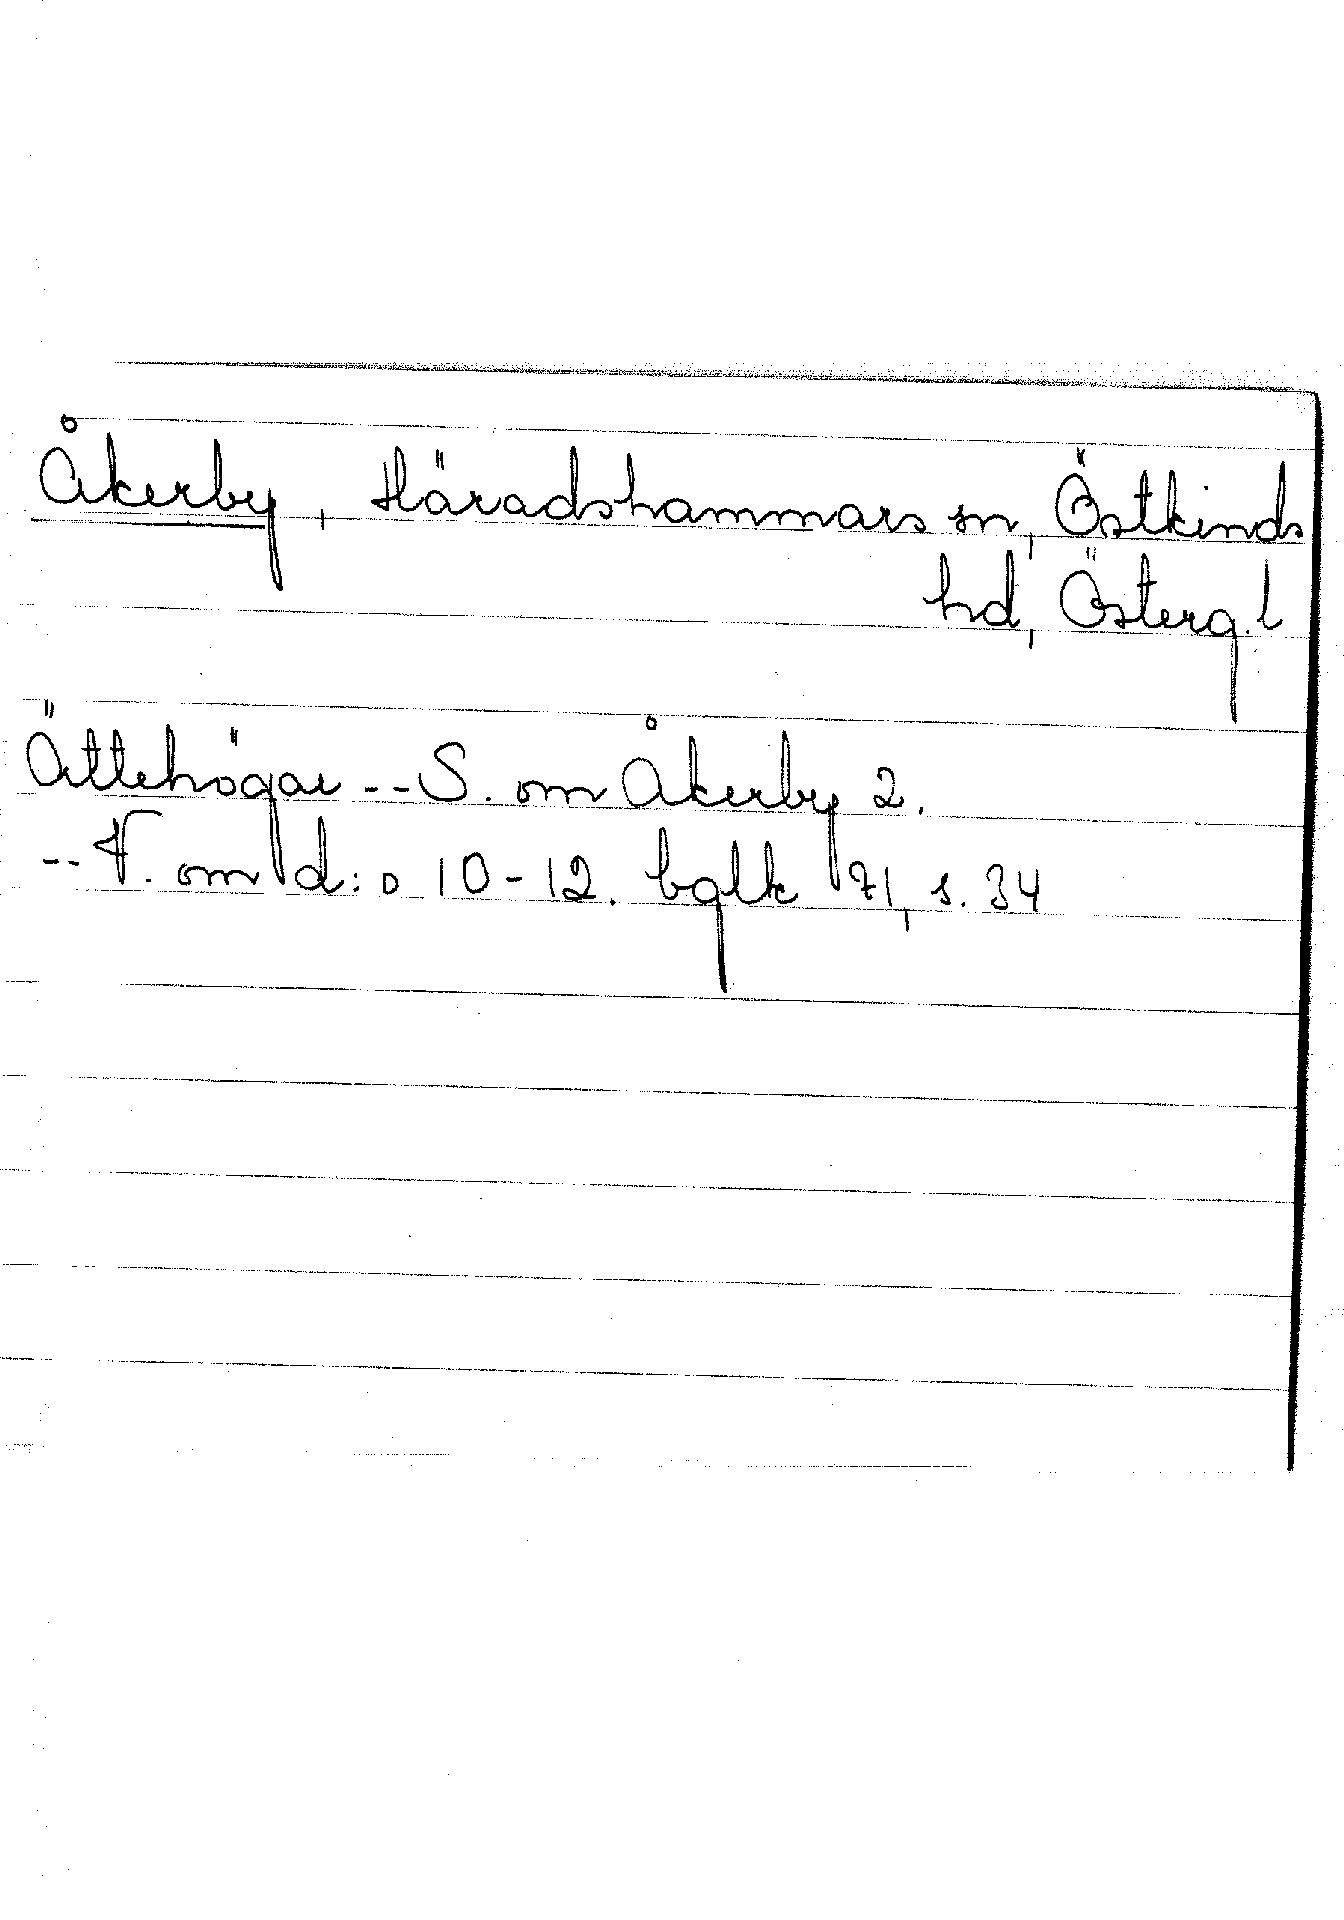 Åkerby, Häradshammars sn, Östkinds
hd, Österg. l
Ättehögar -- S. om Åkerby 2.
-- V. om d:o 10-12. bglk 71, s. 34